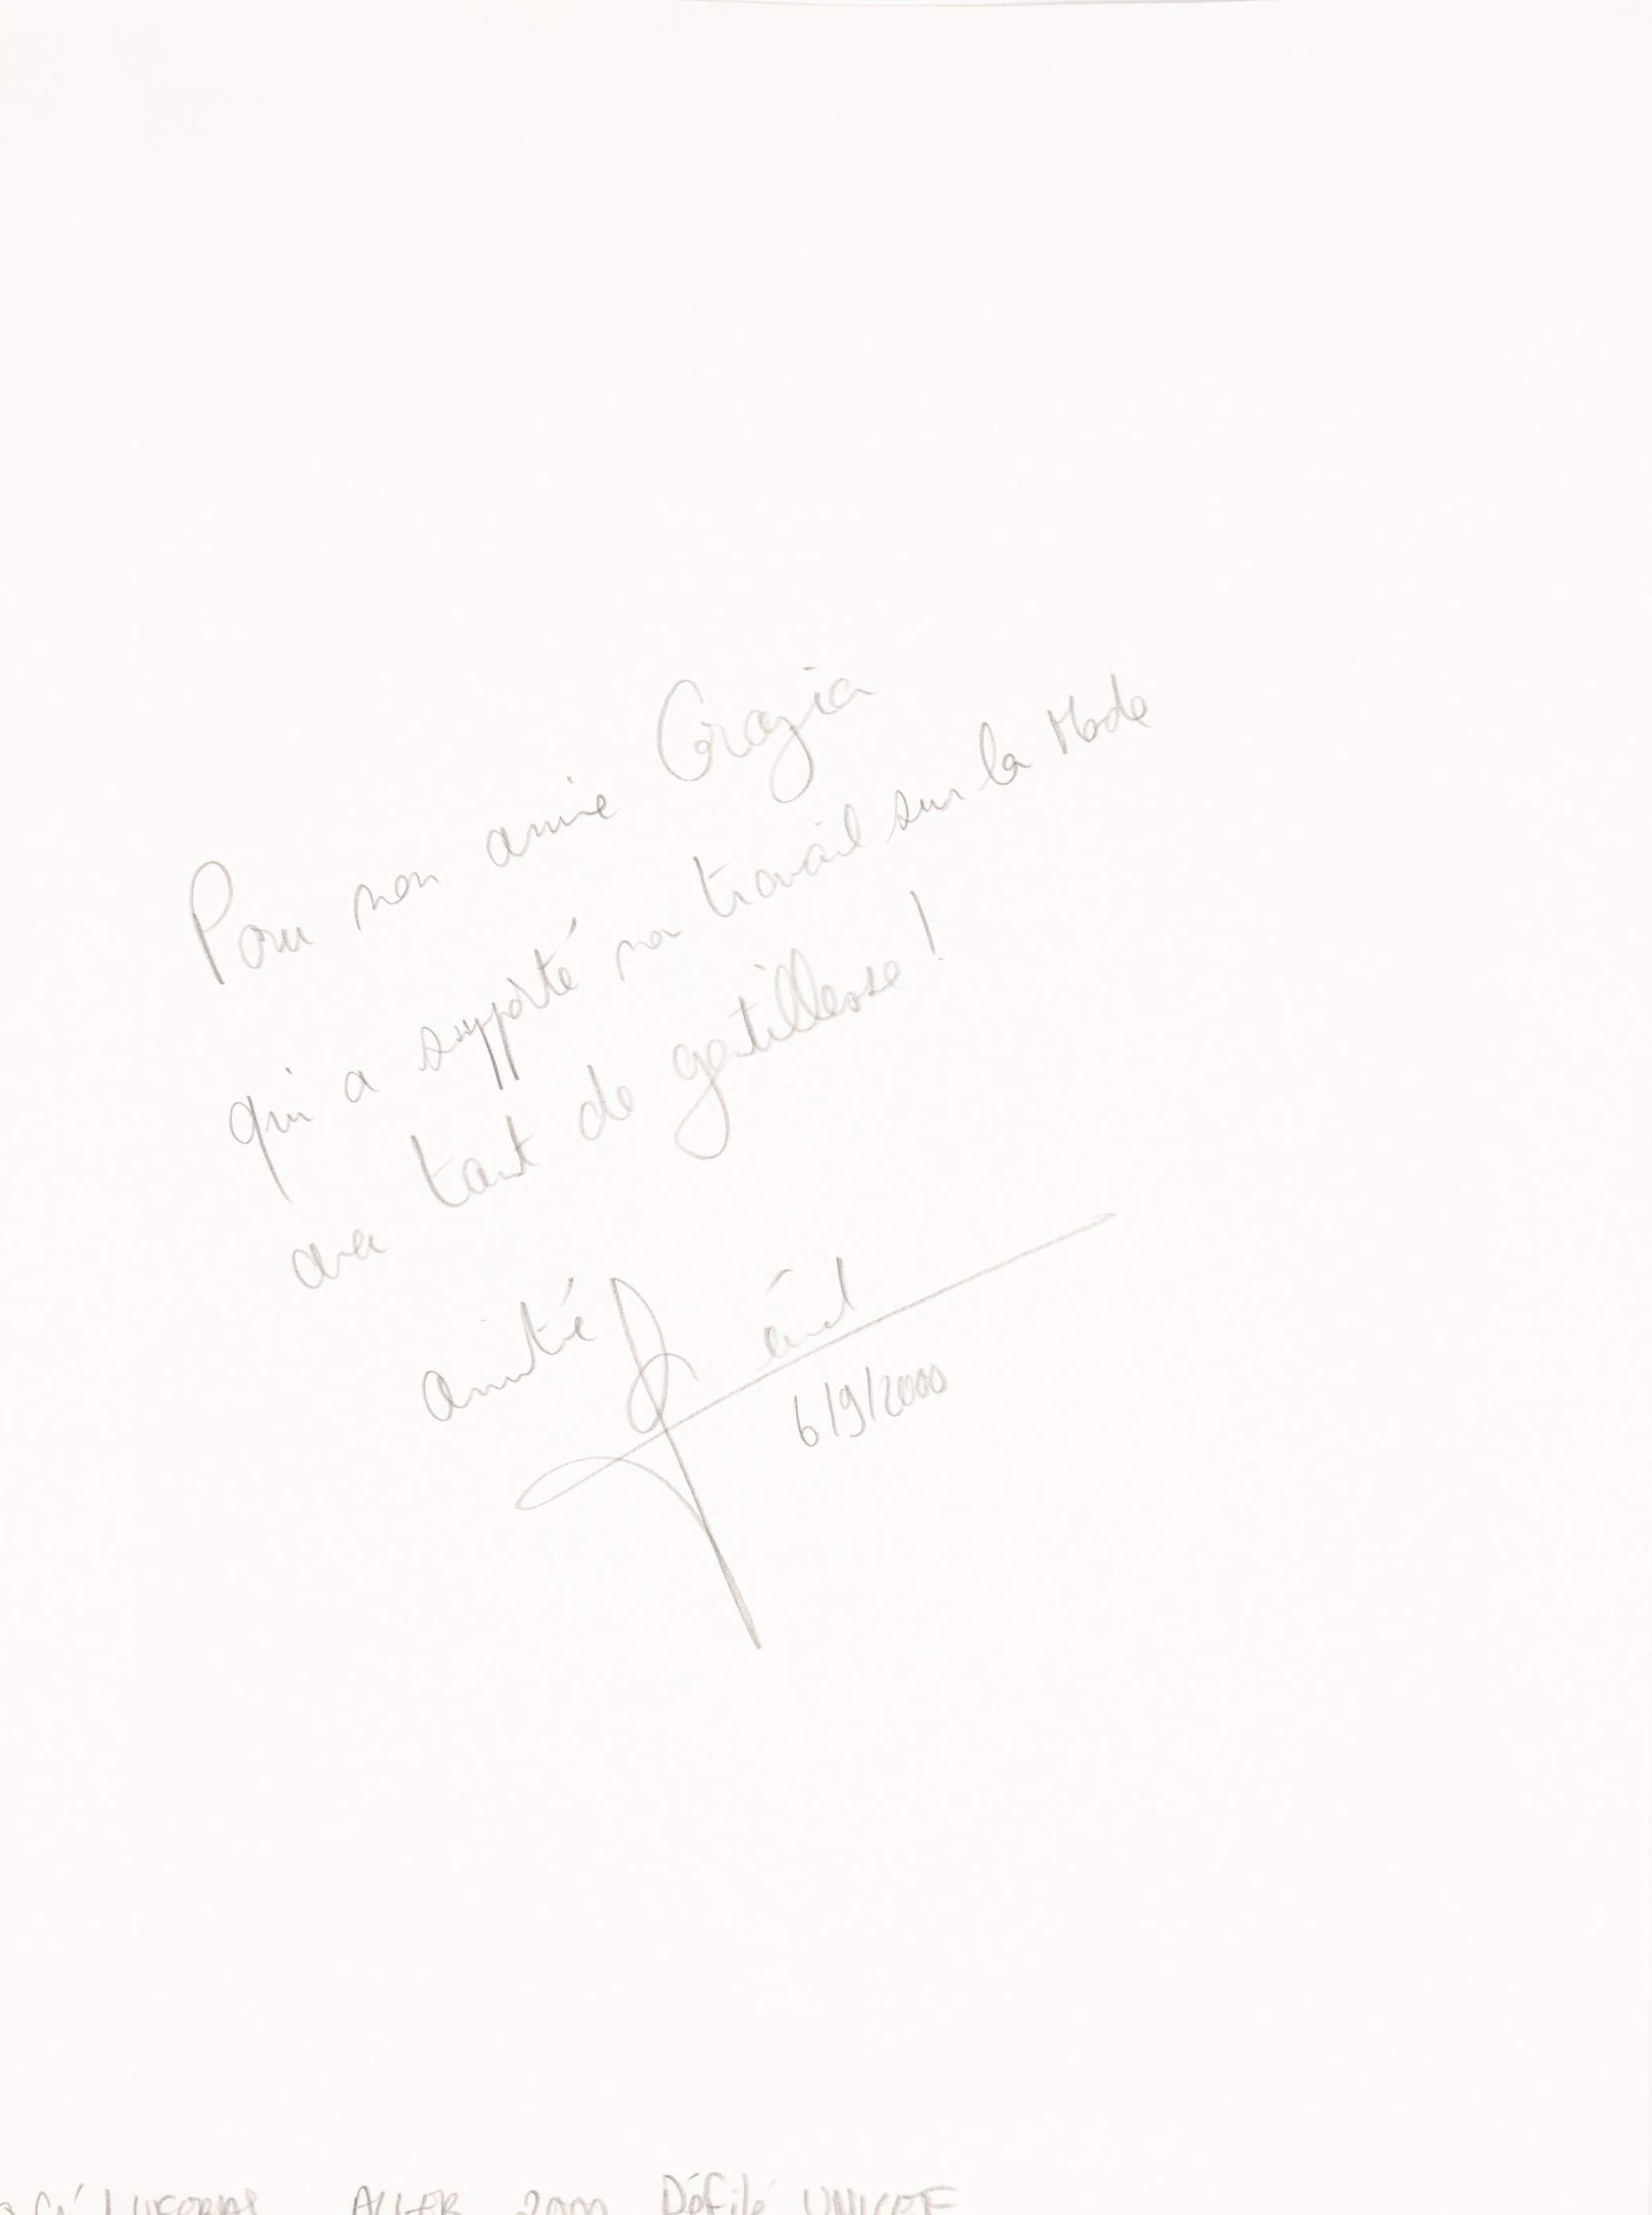 Pour mon amie Grazia
qui a supporté mon travail sur la Mode
avec tant de gentillesse !
amitié
6/9/2000
2000 Défilé UNICEF